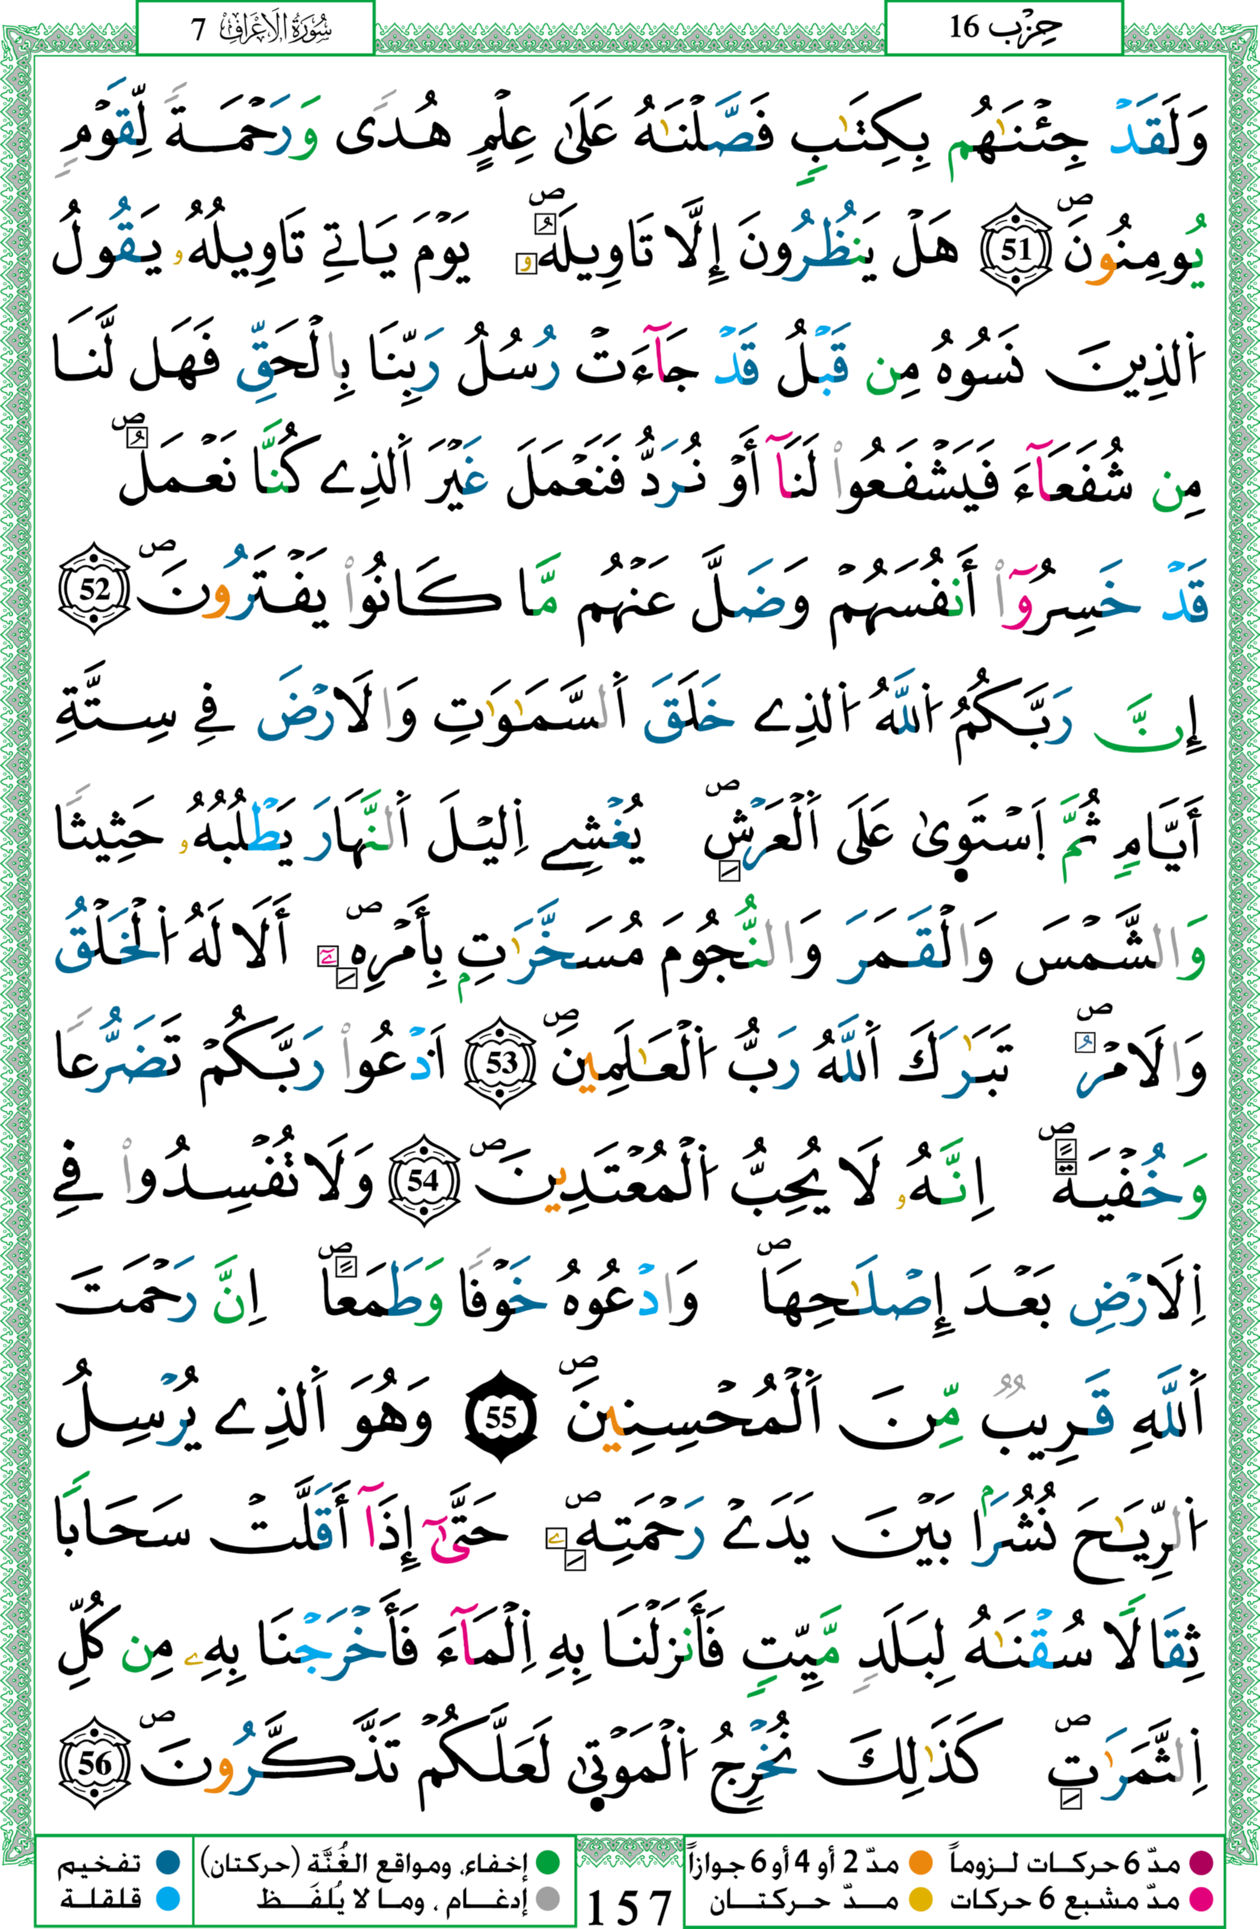 سُورَةُ الْأَعْرَافِ 7
حِزْب 16
وَلَقَدْ جِئْنَٰهُم بِكِتَٰبٍ فَصَّلْنَٰهُ عَلَىٰ عِلْمٍ هُدًى وَرَحْمَةً لِّقَوْمٍ
يُومِنُونَۖ 51 هَلْ يَنظُرُونَ إِلَّا تَاوِيلَهُۥۖ يَوْمَ يَاتِے تَاوِيلُهُۥ يَقُولُ
اُ۬لذِينَ نَسُوهُ مِن قَبْلُ قَدْ جَآءَتْ رُسُلُ رَبِّنَا بِالْحَقِّ فَهَل لَّنَا
مِن شُفَعَآءَ فَيَشْفَعُواْ لَنَآ أَوْ نُرَدُّ فَنَعْمَلَ غَيْرَ اَ۬لذِے كُنَّا نَعْمَلُۖ
قَدْ خَسِرُوٓاْ أَنفُسَهُمْ وَضَلَّ عَنْهُم مَّا كَانُواْ يَفْتَرُونَۖ 52
إِنَّ رَبَّكُمُ اُ۬للَّهُ اُ۬لذِے خَلَقَ اَ۬لسَّمَٰوَٰتِ وَالَارْضَ فِے سِتَّةِ
أَيَّامٍ ثُمَّ اَ۪سْتَو۪يٰ عَلَى اَ۬لْعَرْشِۖ يُغْشِے اِ۬ليْلَ اَ۬لنَّهَارَ يَطْلُبُهُۥ حَثِيثًا
وَالشَّمْسَ وَالْقَمَرَ وَالنُّجُومَ مُسَخَّرَٰتِۢ بِأَمْرِهِۦٓۖ أَلَا لَهُ اُ۬لْخَلْقُ
وَالَامْرُۖ تَبَٰرَكَ اَ۬للَّهُ رَبُّ اُ۬لْعَٰلَمِينَۖ 53 اَ۟دْعُواْ رَبَّكُمْ تَضَرُّعًا
وَخُفْيَةًۖ اِنَّهُۥ لَا يُحِبُّ اُ۬لْمُعْتَدِينَۖ 54 وَلَا تُفْسِدُواْ فِے
اِ۬لَارْضِ بَعْدَ إِصْلَٰحِهَاۖ وَادْعُوهُ خَوْفًا وَطَمَعًاۖ اِنَّ رَحْمَتَ
اَ۬للَّهِ قَرِيبٌ مِّنَ اَ۬لْمُحْسِنِينَۖ 55 وَهُوَ اَ۬لذِے يُرْسِلُ
اُ۬لرِّيَٰحَ نُشُرَۢا بَيْنَ يَدَےْ رَحْمَتِهِۦۖ حَتَّىٰٓ إِذَآ أَقَلَّتْ سَحَابًا
ثِقَالًا سُقْنَٰهُ لِبَلَدٍ مَّيِّتٍ فَأَنزَلْنَا بِهِ اِ۬لْمَآءَ فَأَخْرَجْنَا بِهِۦ مِن كُلِّ
اِ۬لثَّمَرَٰتِۖ كَذَٰلِكَ نُخْرِجُ اُ۬لْمَوْت۪يٰ لَعَلَّكُمْ تَذَّكَّرُونَۖ 56
مدّ 6 حركات لـزومـاً مدّ 2 أو 4 أو 6 جوازاً إخفاء، ومواقع الغُنَّة (حركتان) تفخيم
مدّ مشبع 6 حركات مــدّ حــركتــان إدغــام ، ومـا لا يُلفَــظ قلقلة
157